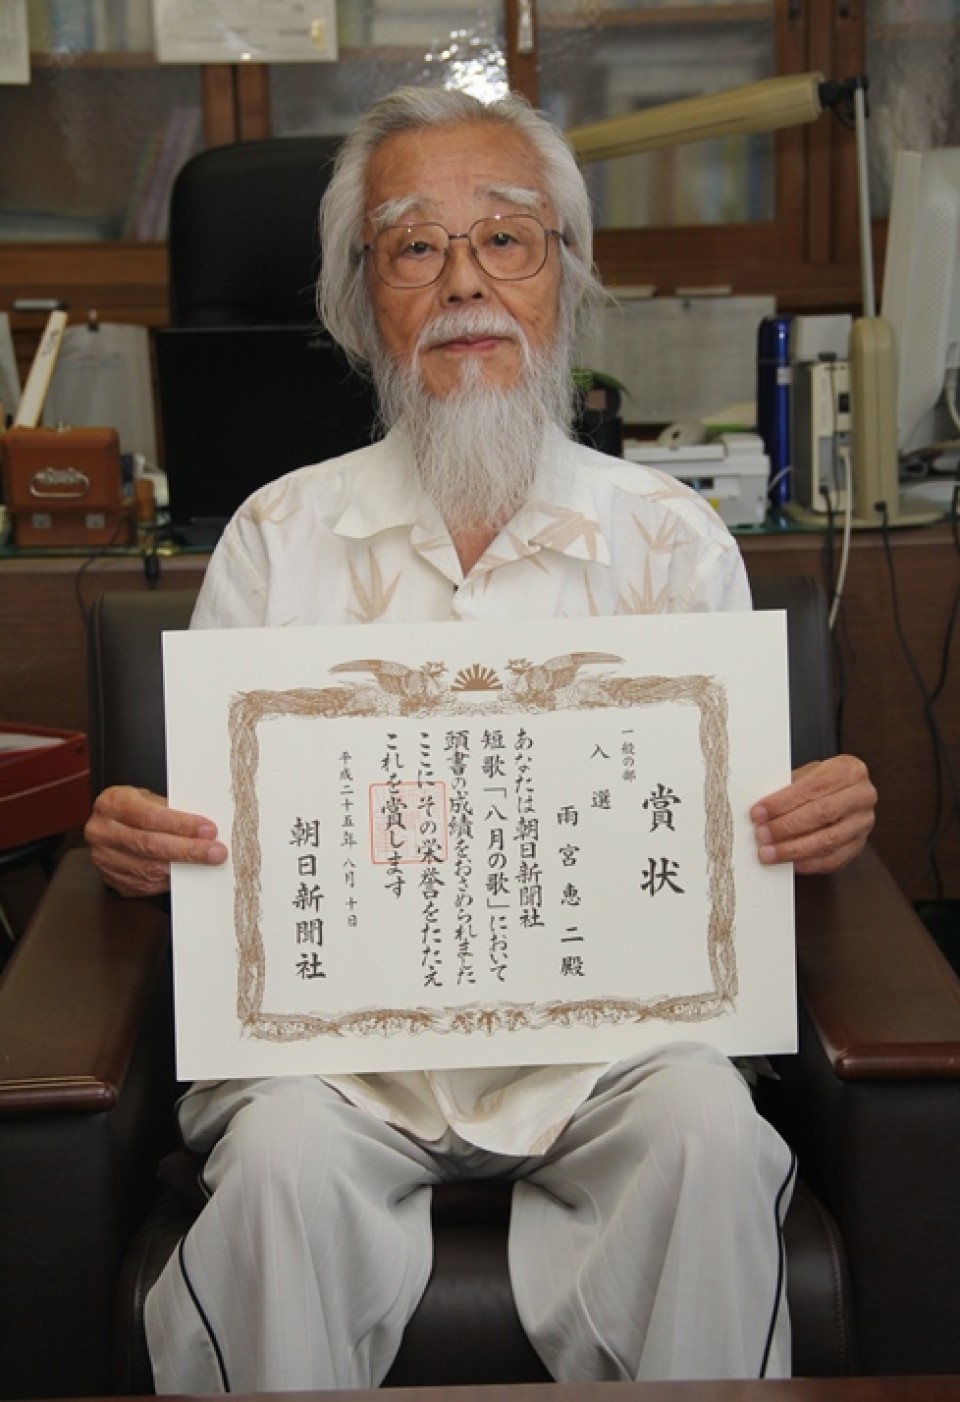 賞状
一般の部
入選
雨宮恵二殿
あなたは朝日新聞社
短歌「八月の歌」において
頭書の成績をおさめられました
ここにその栄誉をたたえ
これを賞します
平成二十五年八月十日
朝日新聞社